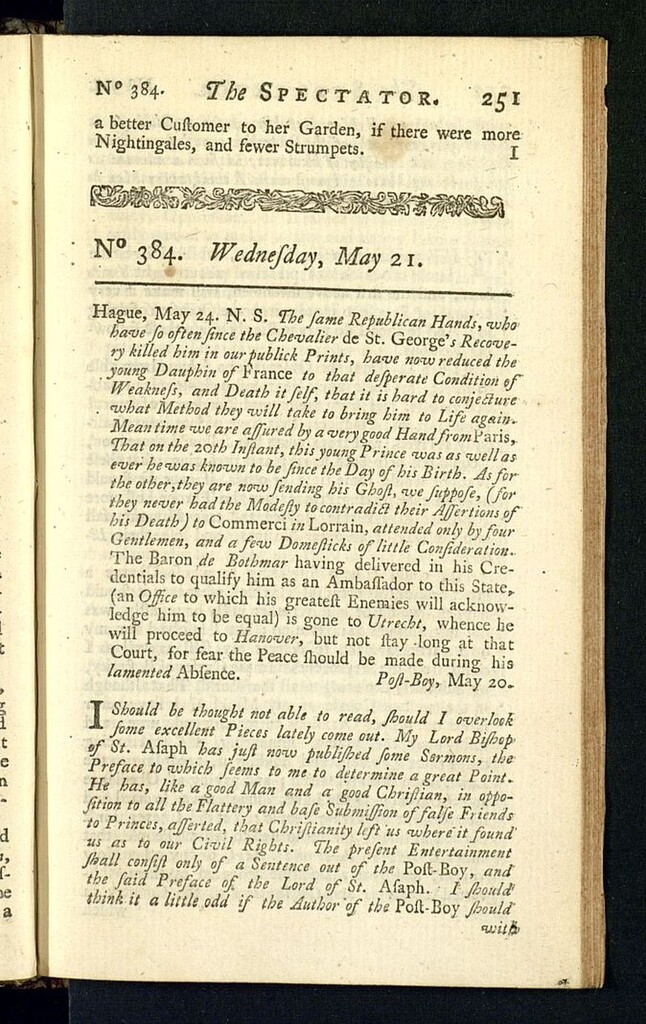 Nº 384. The SPECTATOR. 251
a better Cuſtomer to her Garden, if there were more
Nightingales, and fewer Strumpets. I
Nº 384. Wedneſday, May 21.
Hague, May 24. N. S. The ſame Republican Hands, who
have ſo often ſince the Chevalier de St. George's Recove-
ry killed him in our publick Prints, have now reduced the
young Dauphin of France to that deſperate Condition of
Weakneſs, and Death it ſelf, that it is hard to conjecture
what Method they will take to bring him to Life again.
Mean time we are aſſured by a very good Hand from Paris,
That on the 20th Inſtant, this young Prince was as well as
ever he was known to be ſince the Day of his Birth. As for
the other, they are now ſending his Ghoſt, we ſuppoſe, (for
they never had the Modeſty to contradict their Aſſertions of
his Death) to Commerci in Lorrain, attended only by four
Gentlemen, and a few Domeſticks of little Conſideration.
The Baron de Bothmar having delivered in his Cre-
dentials to qualify him as an Ambaſſador to this State,
(an Office to which his greateſt Enemies will acknow-
ledge him to be equal) is gone to Utrecht, whence he
will proceed to Hanover, but not ſtay long at that
Court, for fear the Peace ſhould be made during his
lamented Abſence. Poſt-Boy, May 20.
I Should be thought not able to read, ſhould I overlook
ſome excellent Pieces lately come out. My Lord Biſhop
of St. Aſaph has juſt now publiſhed ſome Sermons, the
Preface to which ſeems to me to determine a great Point.
He has, like a good Man and a good Chriſtian, in oppo-
ſition to all the Flattery and baſe Submiſſion of falſe Friends
to Princes, aſſerted, that Chriſtianity left us where it found
us as to our Civil Rights. The preſent Entertainment
ſhall conſiſt only of a Sentence out of the Poſt-Boy, and
the ſaid Preface of the Lord of St. Aſaph. I ſhould
think it a little odd if the Author of the Poſt-Boy ſhould
with